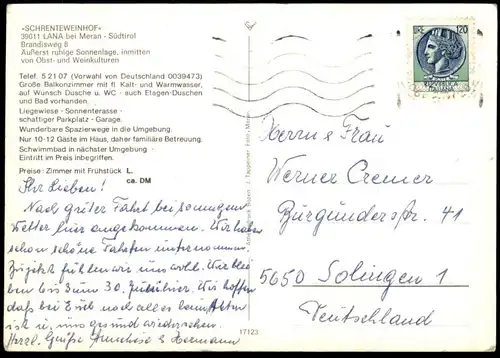 «SCHRENTEWEINHOF»
39011 LANA bei Meran - Südtirol
Brandisweg 8
Äußerst ruhige Sonnenlage, inmitten
von Obst- und Weinkulturen
Telef. 5 21 07 (Vorwahl von Deutschland 0039473)
Große Balkonzimmer mit fl. Kalt- und Warmwasser,
auf Wunsch Dusche u. WC - auch Etagen-Duschen
und Bad vorhanden.
Liegewiese - Sonnenterasse -
schattiger Parkplatz - Garage.
Wunderbare Spazierwege in die Umgebung.
Nur 10-12 Gäste im Haus, daher familiäre Betreuung.
Schwimmbad in nächster Umgebung -
Eintritt im Preis inbegriffen.
Preise: Zimmer mit Frühstück L.
ca. DM
Ihr Lieben!
Nach guter Fahrt bei sonnigem
Wetter hier angekommen. Wir haben
schon schöne Fahrten unternommen.
Zu jetzt fühlen wir uns wohl. Wir blei
ben bis zum 30. Juli hier. Wir hoffen
daß bei Euch noch alles beim Alten
ist u. uns gesund wiedersehen.
Herzl. Grüße Anneliese & Hermann
17123
LIRE 120
Herrn & Frau
Werner Cremer
Burgunderstr. 41
5650 Solingen 1
Deutschland